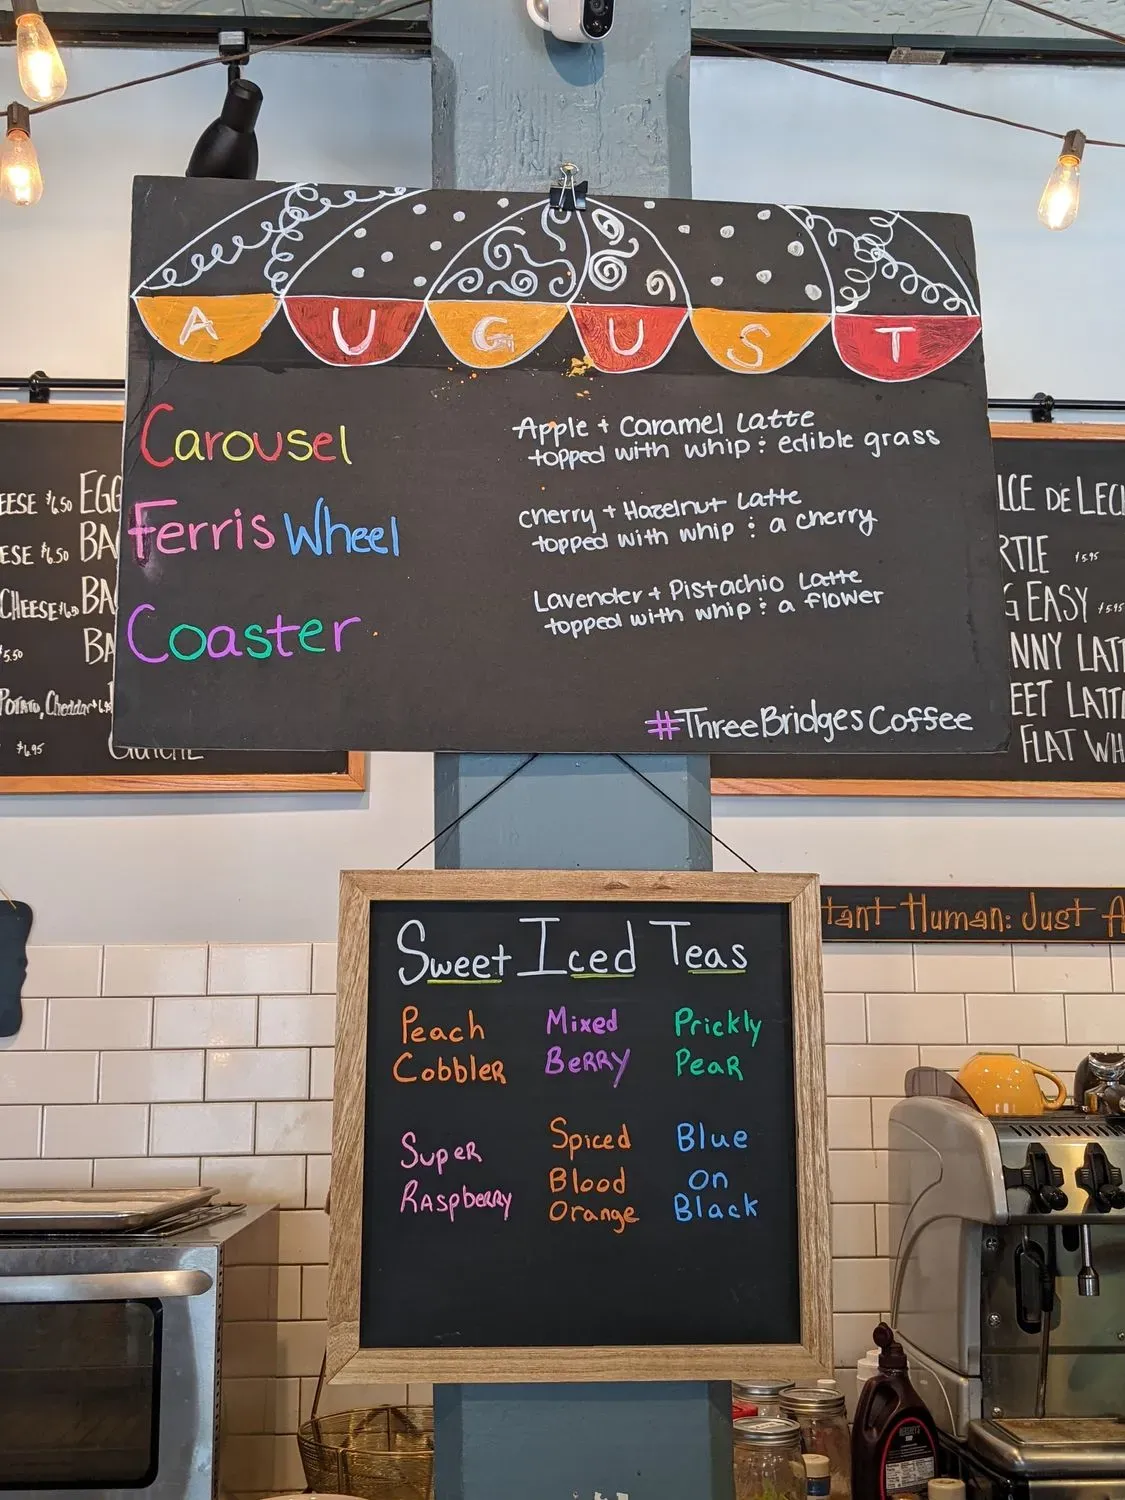 AUGUST
Carousel
Apple + Caramel Latte
topped with whip : edible grass
Ferris Wheel
cherry + Hazelnut Latte
topped with whip : a cherry
Coaster
Lavender + Pistachio Latte
topped with whip : a flower
#ThreeBridgesCoffee
EESE $6.50 EGG
ESE $6.50 BA
CHEESE BA
$5.50 BA
POTATO, Cheddar
$6.95
LCE DE LECH
RTLE $5.95
G EASY $5.95
NNY LATT
EET LATTE
FLAT WH
tant Human: Just A
Sweet Iced Teas
Peach
Cobbler
Mixed
Berry
Prickly
Pear
Super
Raspberry
Spiced
Blood
Orange
Blue
on
Black
HERSHEY'S